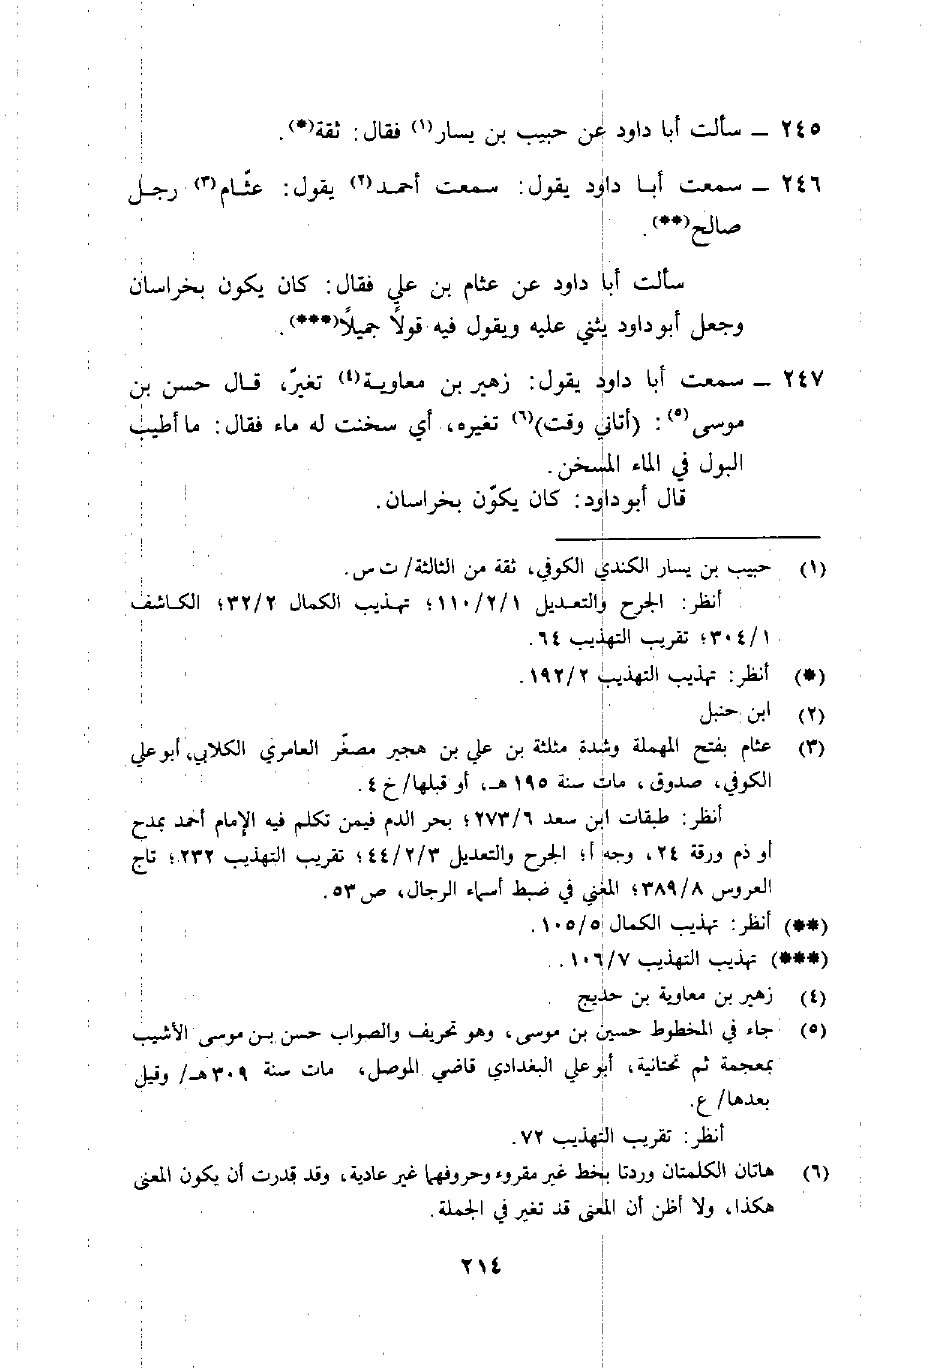 ٢٤٥ ــ سألت أبا داود عن حبيب بن يسار(١) فقال: ثقة(*).
٢٤٦ ــ سمعت أبا داود يقول: سمعت أحمد(٢) يقول: عثّام(٣) رجل
صالح(**).
سألت أبا داود عن عثام بن علي فقال: كان يكون بخراسان
وجعل أبو داود يثني عليه ويقول فيه قولاً جميلاً(***).
٢٤٧ ــ سمعت أبا داود يقول: زهير بن معاوية(٤) تغيرّ، قال حسن بن
موسى(٥): (أتاني وقت)(٦) تغيره، أي سخنت له ماء فقال: ما أطيب
البول في الماء المسخن.
قال أبو داود: كان يكوّن بخراسان.
(١) حبيب بن يسار الكندي الكوفي، ثقة من الثالثة/ ت س.
أنظر: الجرح والتعديل ١١٠/٢/١؛ تهذيب الكمال ٣٢/٢؛ الكاشف
٣٠٤/١؛ تقريب التهذيب ٦٤.
(*) أنظر: تهذيب التهذيب ١٩٢/٢.
(٢) ابن حنبل
(٣) عثام بفتح المهملة وشدة مثلثة بن علي بن هجير مصغّر العامري الكلابي، أبو علي
الكوفي، صدوق، مات سنة ١٩٥ هـ، أو قبلها/ خ ٤.
أنظر: طبقات ابن سعد ٢٧٣/٦؛ بحر الدم فيمن تكلم فيه الإمام أحمد بمدح
أو ذم ورقة ٢٤، وجه أ؛ الجرح والتعديل ٤٤/٢/٣؛ تقريب التهذيب ٢٣٢؛ تاج
العروس ٣٨٩/٨؛ المغني في ضبط أسماء الرجال، ص ٥٣.
(**) أنظر: تهذيب الكمال ١٠٥/٥.
(***) تهذيب التهذيب ١٠٦/٧.
(٤) زهير بن معاوية بن حديج
(٥) جاء في المخطوط حسين بن موسى، وهو تحريف والصواب حسن بن موسى الأشيب
بمعجمة ثم تحتانية، أبو علي البغدادي قاضي الموصل، مات سنة ٣٠٩ هـ/ وقيل
بعدها/ ع.
أنظر: تقريب التهذيب ٧٢.
(٦) هاتان الكلمتان وردتا بخط غير مقروء وحروفهما غير عادية، وقد قدرت أن يكون المعنى
هكذا، ولا أظن أن المعنى قد تغير في الجملة.
٢١٤